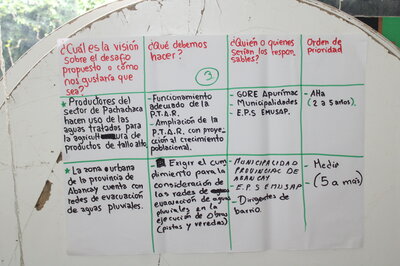 ¿Cuál es la visión
sobre el desafo
propuesto o cómo
nos gustaría que
sea?
¿Qué debemos
hacer?
3
¿Quién o quienes
serían los respon
sables?
Orden de
prioridad
* Productores del
sector de Pachachaca
hacen uso de las
aguas tratados para
la agricultura de
productos de tallo alto
- Funcionamiento
adecuado de la
P.T.A.R.
- Ampliación de la
P.T.A.R. con proyec
ción al crecimiento
poblacional.
- GORE Apurímac
- Municipalidades
- E.P.S EMUSAP.
- Alta
(2 a 5 años).
* La zona urbana
de la provincia de
Abancay cuenta con
redes de evacuación
de aguas pluviales.
Exigir el cum
plimiento para la
consideración de
las redes de
evacuación de aguas
pluviales en la
ejecución de obras
(pistas y veredas)
- MUNICIPALIDAD
PROVINCIAL DE
ABANCAY
- E.P.S EMUSAP
- Dirigentes de
barrio.
- Media
- (5 a más)